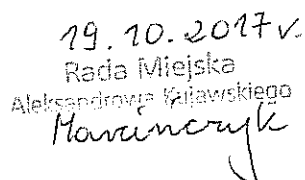 19.10.2017r.
Rada Miejska
Aleksandrowa Kujawskiego
Marcinczyk